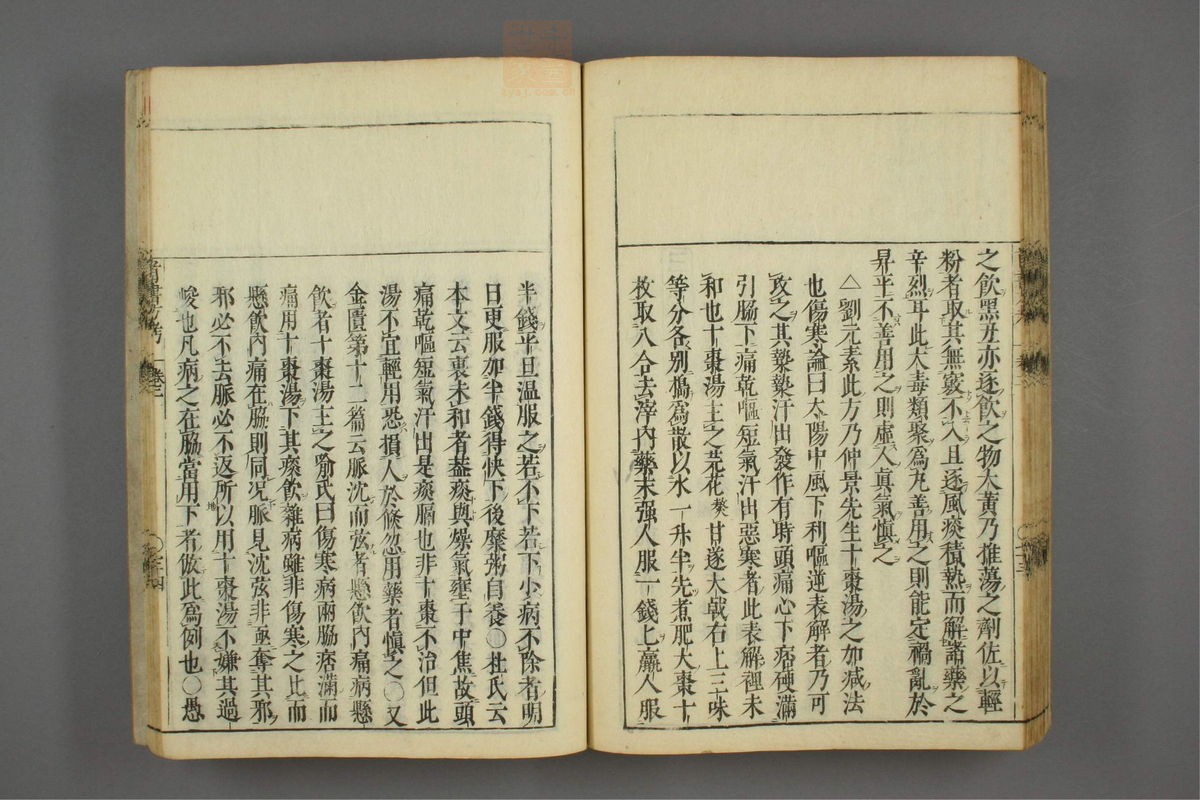 之飲黑丑亦逐飲之物大黃乃推蕩之劑佐以輕
粉者取其無竅不入且逐風痰積熱而解諸藥之
辛烈耳此大毒類聚爲丸善用之則能定禍亂於
昇平不善用之則虛人眞氣慎之
△劉元素此方乃仲景先生十棗湯之加減法
也傷寒論曰太陽中風下利嘔逆表解者乃可
攻之其漐漐汗出發作有時頭痛心下痞硬滿
引脇下痛乾嘔短氣汗出惡寒者此表解裡未
和也十棗湯主之芫花熬甘遂大戟右上三味
等分各別搗爲散以水一升半先煮肥大棗十
枚取八合去滓內藥末强人服一錢匕羸人服
半錢平旦温服之若不下若下少病不除者明
日更服加半錢得快下後糜粥自養〇杜氏云
本文云裏未和者蓋痰與燥氣壅于中焦故頭
痛乾嘔短氣汗出是痰膈也非十棗不治但此
湯不宜輕用恐損人於倏忽用藥者慎之〇又
金匱第十二篇云脈沈而弦者懸飲內痛病懸
飲者十棗湯主之喻氏曰傷寒病兩脇痞滿而
痛用十棗湯下其痰飲雜病雖非傷寒之比而
懸飲內痛在脇則同况脈見沈弦非亟奪其邪
邪必不去脈必不返所以用十棗湯不嫌其過
峻也凡病之在脇當用下者倣此爲例也〇愚
卷三